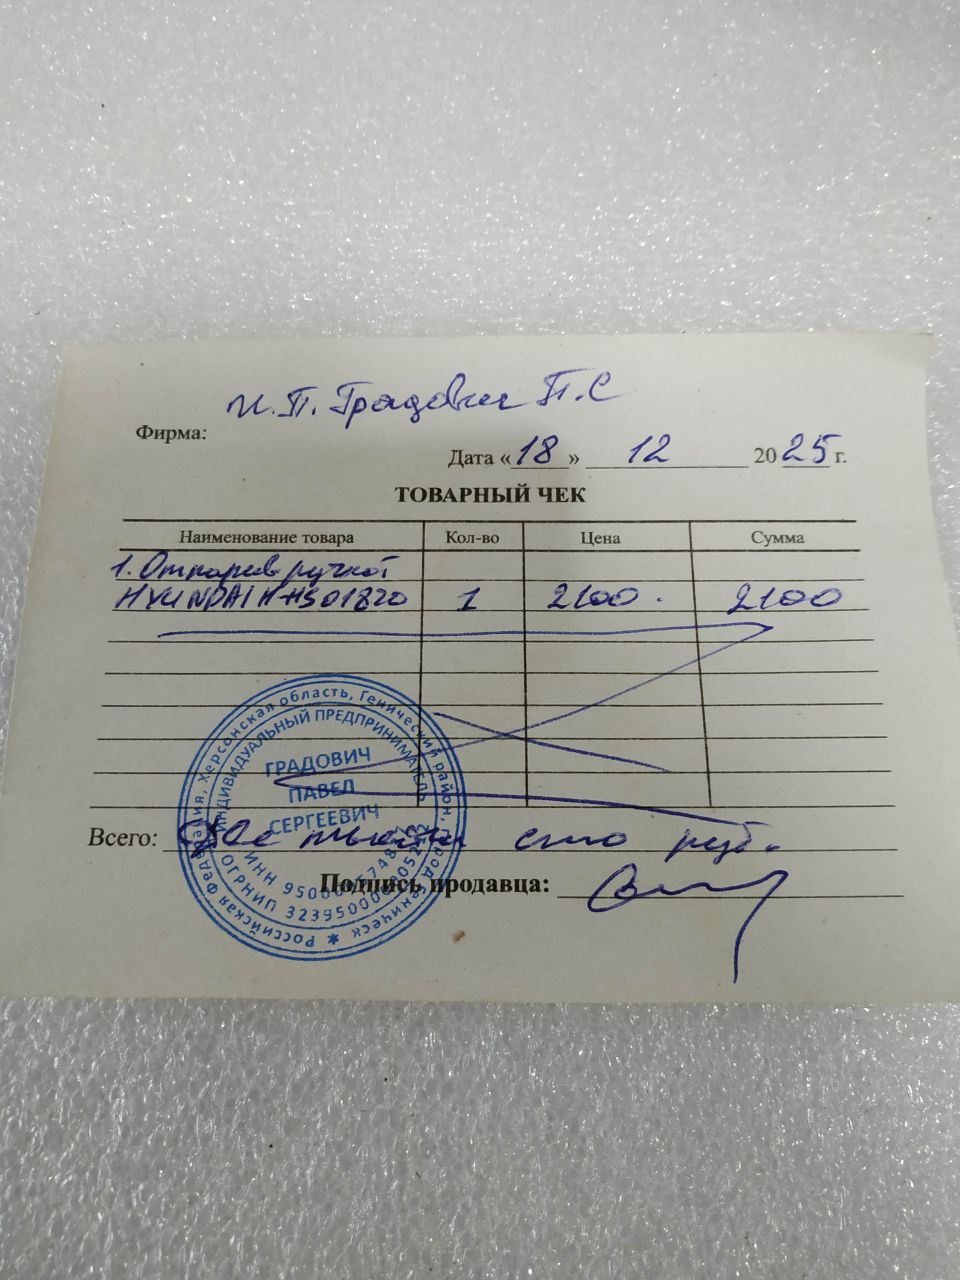 И.П. Градович П.С
Фирма:
Дата «18» 12 2025 г.
ТОВАРНЫЙ ЧЕК
Наименование товара Кол-во Цена Сумма
1. Отпарив ручной
HYUNDAI H-HS01820 1 2100. 2100
Российская Федерация, Херсонская область, Генический район, город Геническ
ИНДИВИДУАЛЬНЫЙ ПРЕДПРИНИМАТЕЛЬ
ГРАДОВИЧ
ПАВЕЛ
СЕРГЕЕВИЧ
ИНН
ОГРНИП
Всего: Две тысячи сто руб.
Подпись продавца: